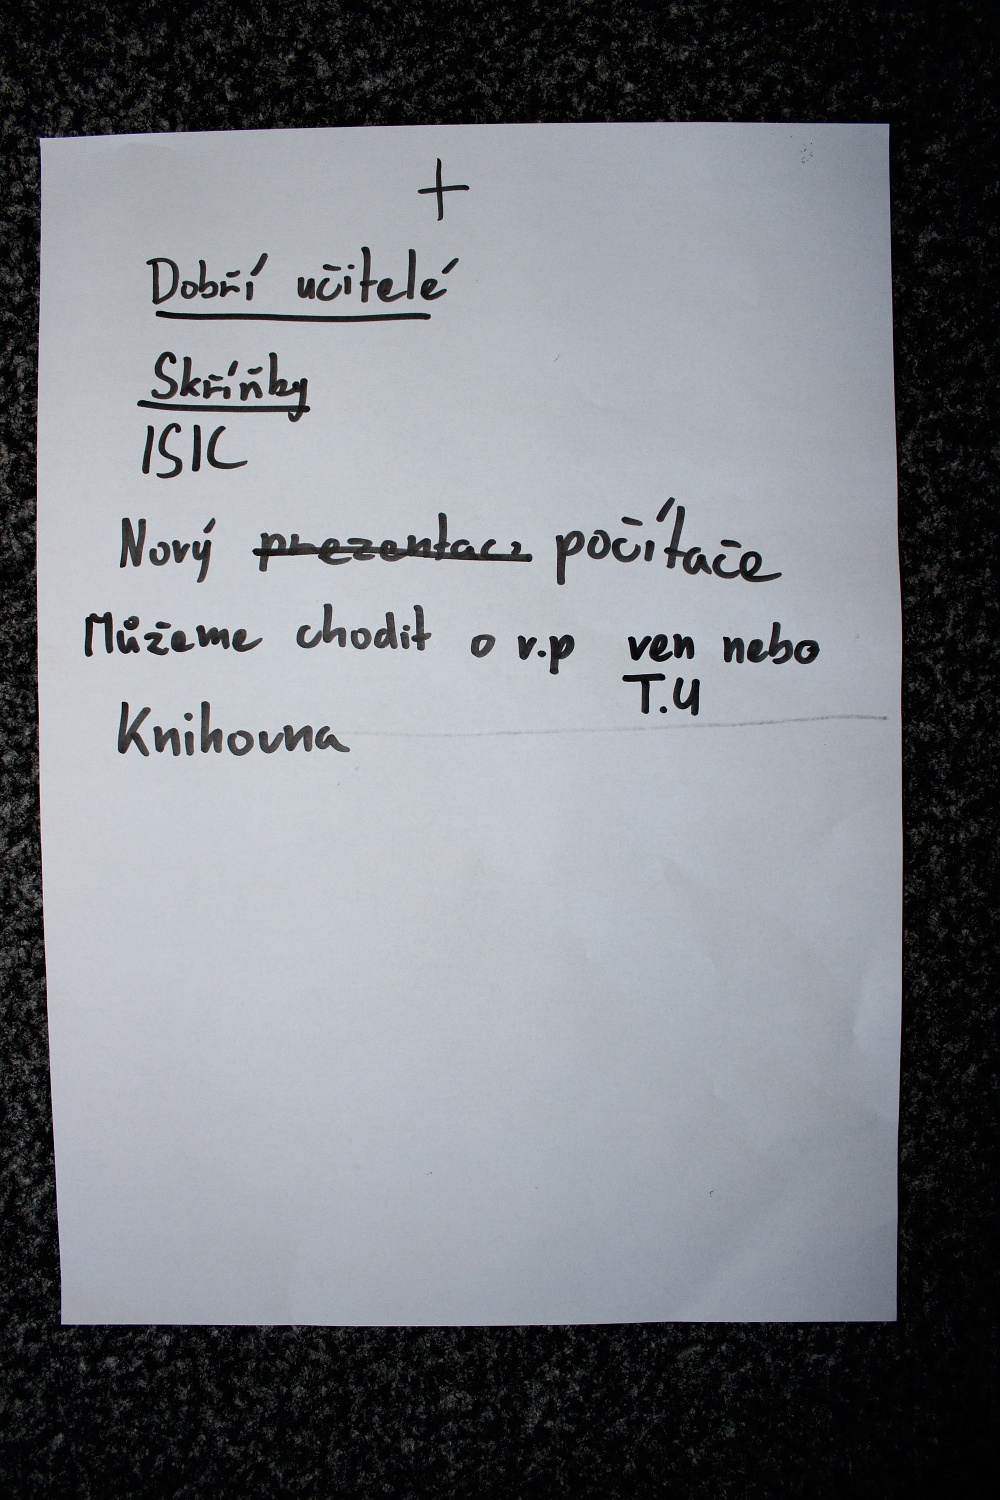 +
Dobří učitelé
Skříňky
ISIC
Nový prezentaci počítače
Můžeme chodit o v.p ven nebo
T.U
Knihovna